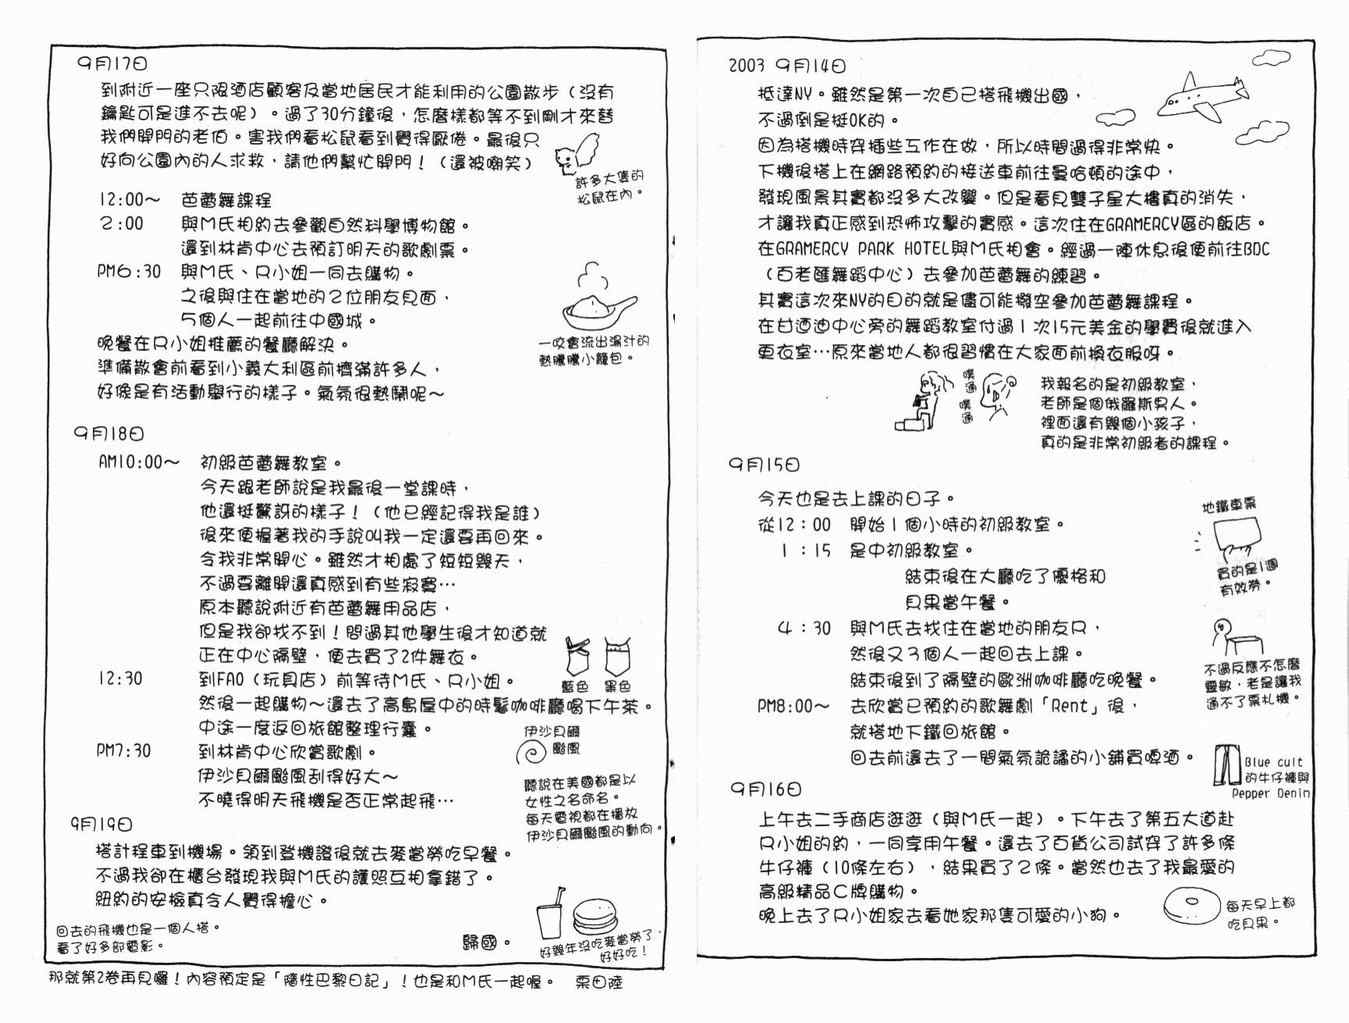 2003 9月14日
抵達NY。雖然是第一次自己搭飛機出國，
不過倒是挺OK的。
因為搭機時穿插些工作在做，所以時間過得非常快。
下機後搭上在網路預約的接送車前往曼哈頓的途中，
發現風景其實都沒多大改變。但是看見雙子星大樓真的消失，
才讓我真正感到恐怖攻擊的實感。這次住在GRAMERCY區的飯店。
在GRAMERCY PARK HOTEL與M氏相會。經過一陣休息後便前往BDC
（百老匯舞蹈中心）去參加芭蕾舞的練習。
其實這次來NY的目的就是儘可能撥空參加芭蕾舞課程。
在甘迺迪中心旁的舞蹈教室付過1次15元美金的學費後就進入
更衣室…原來當地人都很習慣在大家面前換衣服呀。
噗通
噗通
我報名的是初級教室，
老師是個俄羅斯男人。
裡面還有幾個小孩子，
真的是非常初級者的課程。
9月15日
今天也是去上課的日子。
從12：00 開始1個小時的初級教室。
1：15 是中初級教室。
結束後在大廳吃了優格和
貝果當午餐。
4：30 與M氏去找住在當地的朋友R，
然後又3個人一起回去上課。
結束後到了隔壁的歐洲咖啡廳吃晚餐。
PM8:00～ 去欣賞已預約的歌舞劇「Rent」後，
就搭地下鐵回旅館。
回去前還去了一間氣氛詭譎的小舖買啤酒。
地鐵車票
買的是1週
有效券。
不過反應不怎麼
靈敏，老是讓我
過不了票札機。
9月16日
上午去二手商店逛逛（與M氏一起）。下午去了第五大道赴
R小姐的約，一同享用午餐。還去了百貨公司試穿了許多條
牛仔褲（10條左右），結果買了2條。當然也去了我最愛的
高級精品C牌購物。
晚上去了R小姐家去看她家那隻可愛的小狗。
Blue cult
的牛仔褲與
Pepper Denin
每天早上都
吃貝果。
9月17日
到附近一座只限酒店顧客及當地居民才能利用的公園散步（沒有
鑰匙可是進不去呢）。過了30分鐘後，怎麼樣都等不到剛才來替
我們開門的老伯。害我們看松鼠看到覺得厭倦。最後只
好向公園內的人求救，請他們幫忙開門！（還被嘲笑）
許多大隻的
松鼠在內。
12:00～ 芭蕾舞課程
2：00 與M氏相約去參觀自然科學博物館。
還到林肯中心去預訂明天的歌劇票。
PM6:30 與M氏、R小姐一同去購物。
之後與住在當地的2位朋友見面，
5個人一起前往中國城。
晚餐在R小姐推薦的餐廳解決。
準備散會前看到小義大利區前擠滿許多人，
好像是有活動舉行的樣子。氣氛很熱鬧呢～
一咬會流出湯汁的
熱騰騰小籠包。
9月18日
AM10:00～ 初級芭蕾舞教室。
今天跟老師說是我最後一堂課時，
他還挺驚訝的樣子！（他已經記得我是誰）
後來便握著我的手說叫我一定還要再回來。
令我非常開心。雖然才相處了短短幾天，
不過要離開還真感到有些寂寞…
原本聽說附近有芭蕾舞用品店，
但是我卻找不到！問過其他學生後才知道就
正在中心隔壁，便去買了2件舞衣。
藍色 黑色
12:30 到FAO（玩具店）前等待M氏、R小姐。
然後一起購物～還去了高島屋中的時髦咖啡廳喝下午茶。
中途一度返回旅館整理行囊。
PM7:30 到林肯中心欣賞歌劇。
伊沙貝爾颱風刮得好大～
不曉得明天飛機是否正常起飛…
伊沙貝爾
颱風
聽說在美國都是以
女性之名命名。
每天電視都在播放
伊沙貝爾颱風的動向。
9月19日
搭計程車到機場。領到登機證後就去麥當勞吃早餐。
不過我卻在櫃台發現我與M氏的護照互相拿錯了。
紐約的安檢真令人覺得擔心。
回去的飛機也是一個人搭。
看了好多部電影。
歸國。
好幾年沒吃麥當勞了
好好吃！
那就第2卷再見囉！內容預定是「隨性巴黎日記」！也是和M氏一起喔。 栗田陸